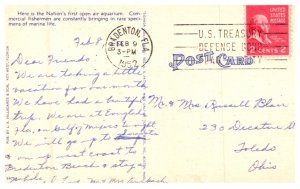 Here is the Nation's first open air aquarium. Com-
mercial fishermen are constantly bringing in rare speci-
mens of marine life.
BRADENTON, FLA.
FEB 9
3-PM
1952
U.S. TREASURY
DEFENSE
UNITED STATES
POSTAGE
2 CENTS 2
POST CARD
Feb. 9
Dear Friends:
We are taking a little
vacation for one month
We have had a beautiful
trip. We are at English
Fla, on
We will go up to
on west coast to
Bradenton Beach & stay a
while.
Mr & Mrs
Mr & Mrs Russell Blair
230 Decatur St
Toledo
Ohio